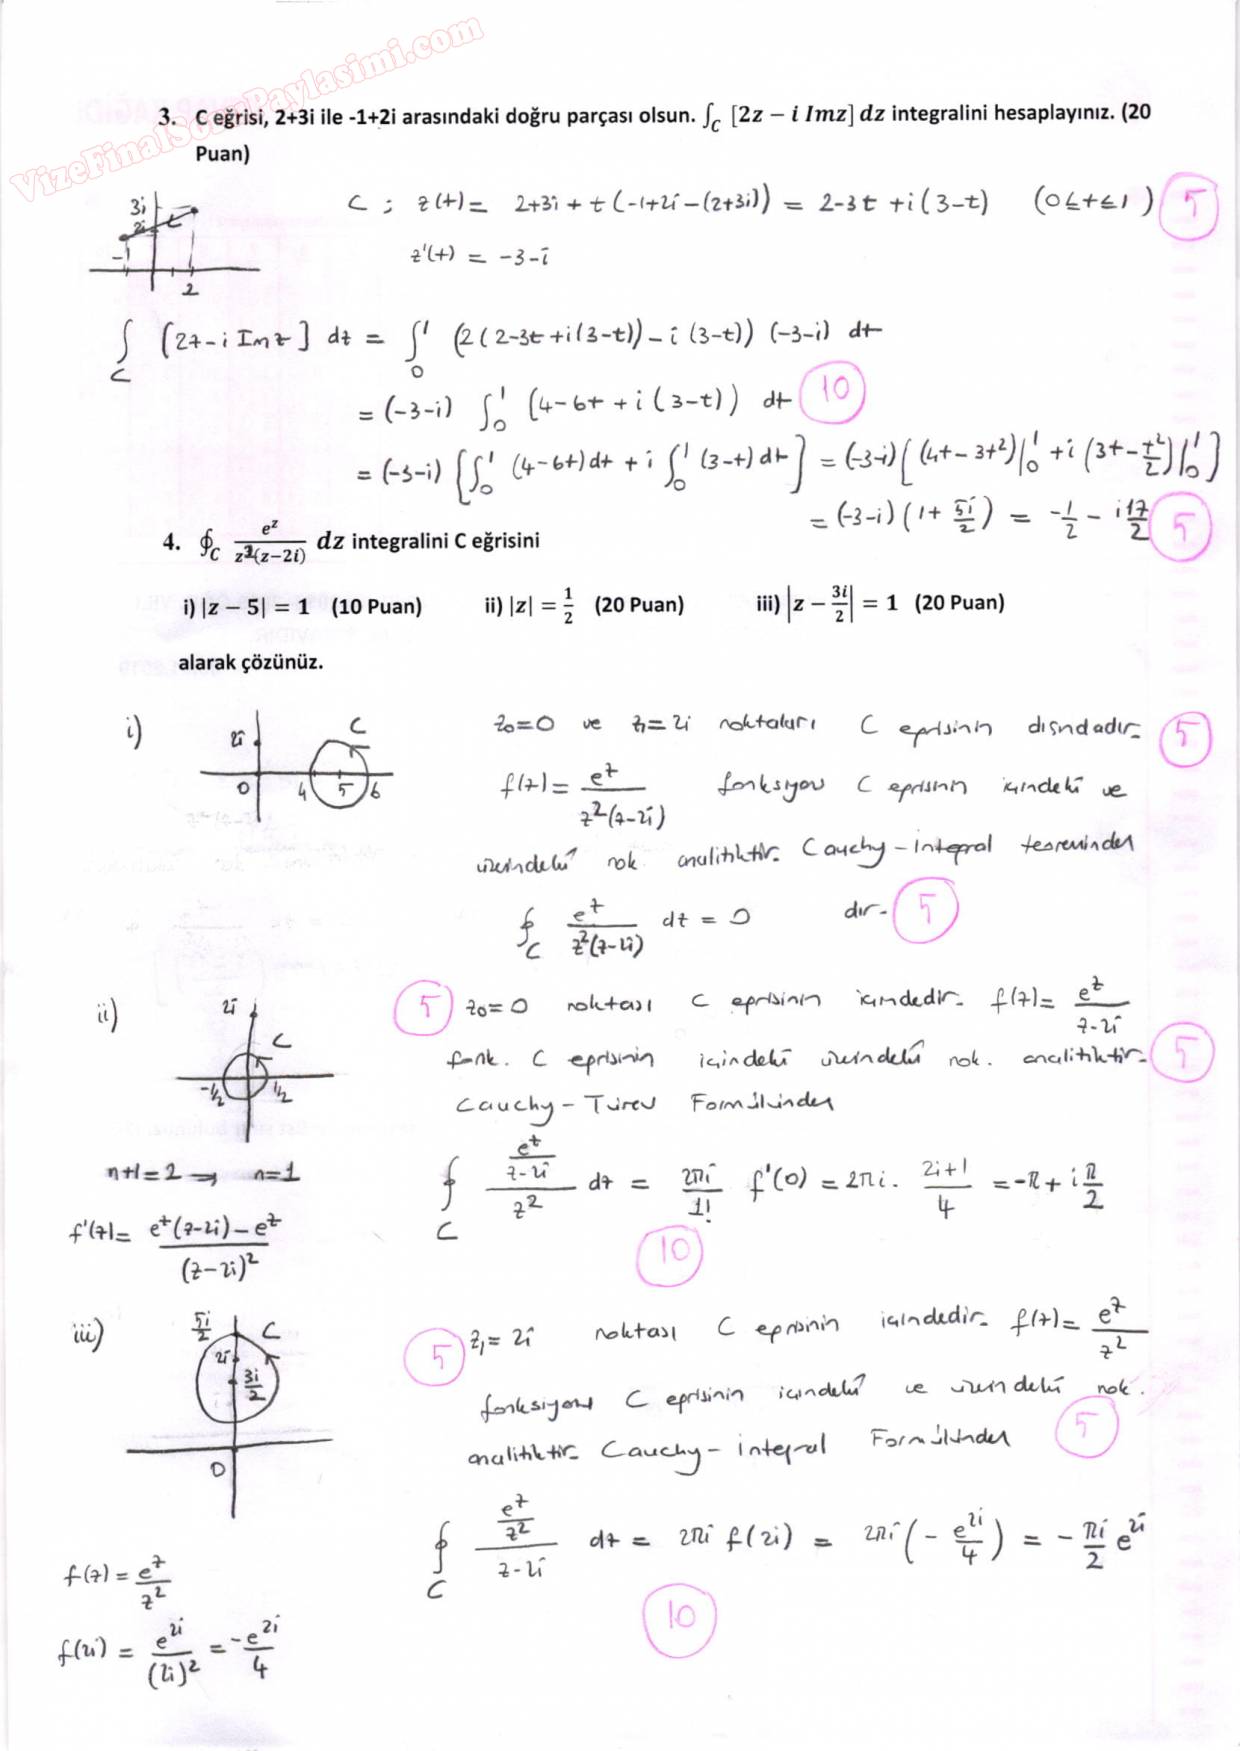 VizeFinalSoruPaylasimi.com
3. C eğrisi, 2+3i ile -1+2i arasındaki doğru parçası olsun. ∫_C [2z − i Imz] dz integralini hesaplayınız. (20
Puan)
3i 2i C -1 2
C : z(t) = 2+3i + t(-1+2i-(2+3i)) = 2-3t +i(3-t) (0≤t≤1) 5
z'(t) = -3-i
∫_C [2z-i Imz] dz = ∫_0^1 (2(2-3t+i(3-t))-i(3-t)) (-3-i) dt
= (-3-i) ∫_0^1 (4-6t + i(3-t)) dt 10
= (-3-i) [∫_0^1 (4-6t)dt + i ∫_0^1 (3-t)dt] = (-3-i)[(4t-3t²)|_0^1 + i(3t-t²/2)|_0^1]
= (-3-i)(1+ 5i/2) = -1/2 - i17/2 5
4. ∮_C e^z/(z²(z−2i)) dz integralini C eğrisini
i) |z − 5| = 1 (10 Puan) ii) |z| = 1/2 (20 Puan) iii) |z − 3i/2| = 1 (20 Puan)
alarak çözünüz.
i) 2i C 0 4 5 6
z₀=0 ve z₁=2i noktaları C eğrisinin dışındadır. 5
f(z) = e^z/(z²(z-2i)) fonksiyon C eğrisinin içindeki ve
üzerindeki nok. analitiktir. Cauchy-integral teoreminden
∮_C e^z/(z²(z-2i)) dz = 0 dır. 5
ii) 2i C -1/2 1/2
5 z₀=0 noktası C eğrisinin içindedir. f(z)= e^z/(z-2i)
fonk. C eğrisinin içindeki üzerindeki nok. analitiktir. 5
Cauchy-Türev Formülünden
n+1=2 → n=1
∮_C (e^z/(z-2i))/z² dz = 2πi/1! f'(0) = 2πi · (2i+1)/4 = -π + i π/2
f'(z)= (e^z(z-2i)-e^z)/(z-2i)²
10
iii) 5i/2 C 2i 3i/2 0
5 z₁=2i noktası C eğrisinin içindedir. f(z)= e^z/z²
fonksiyonu C eğrisinin içindeki ve üzerindeki nok.
analitiktir. Cauchy-integral Formülünden 5
∮_C (e^z/z²)/(z-2i) dz = 2πi f(2i) = 2πi(- e^{2i}/4) = - πi/2 e^{2i}
f(z) = e^z/z²
10
f(2i) = e^{2i}/(2i)² = -e^{2i}/4